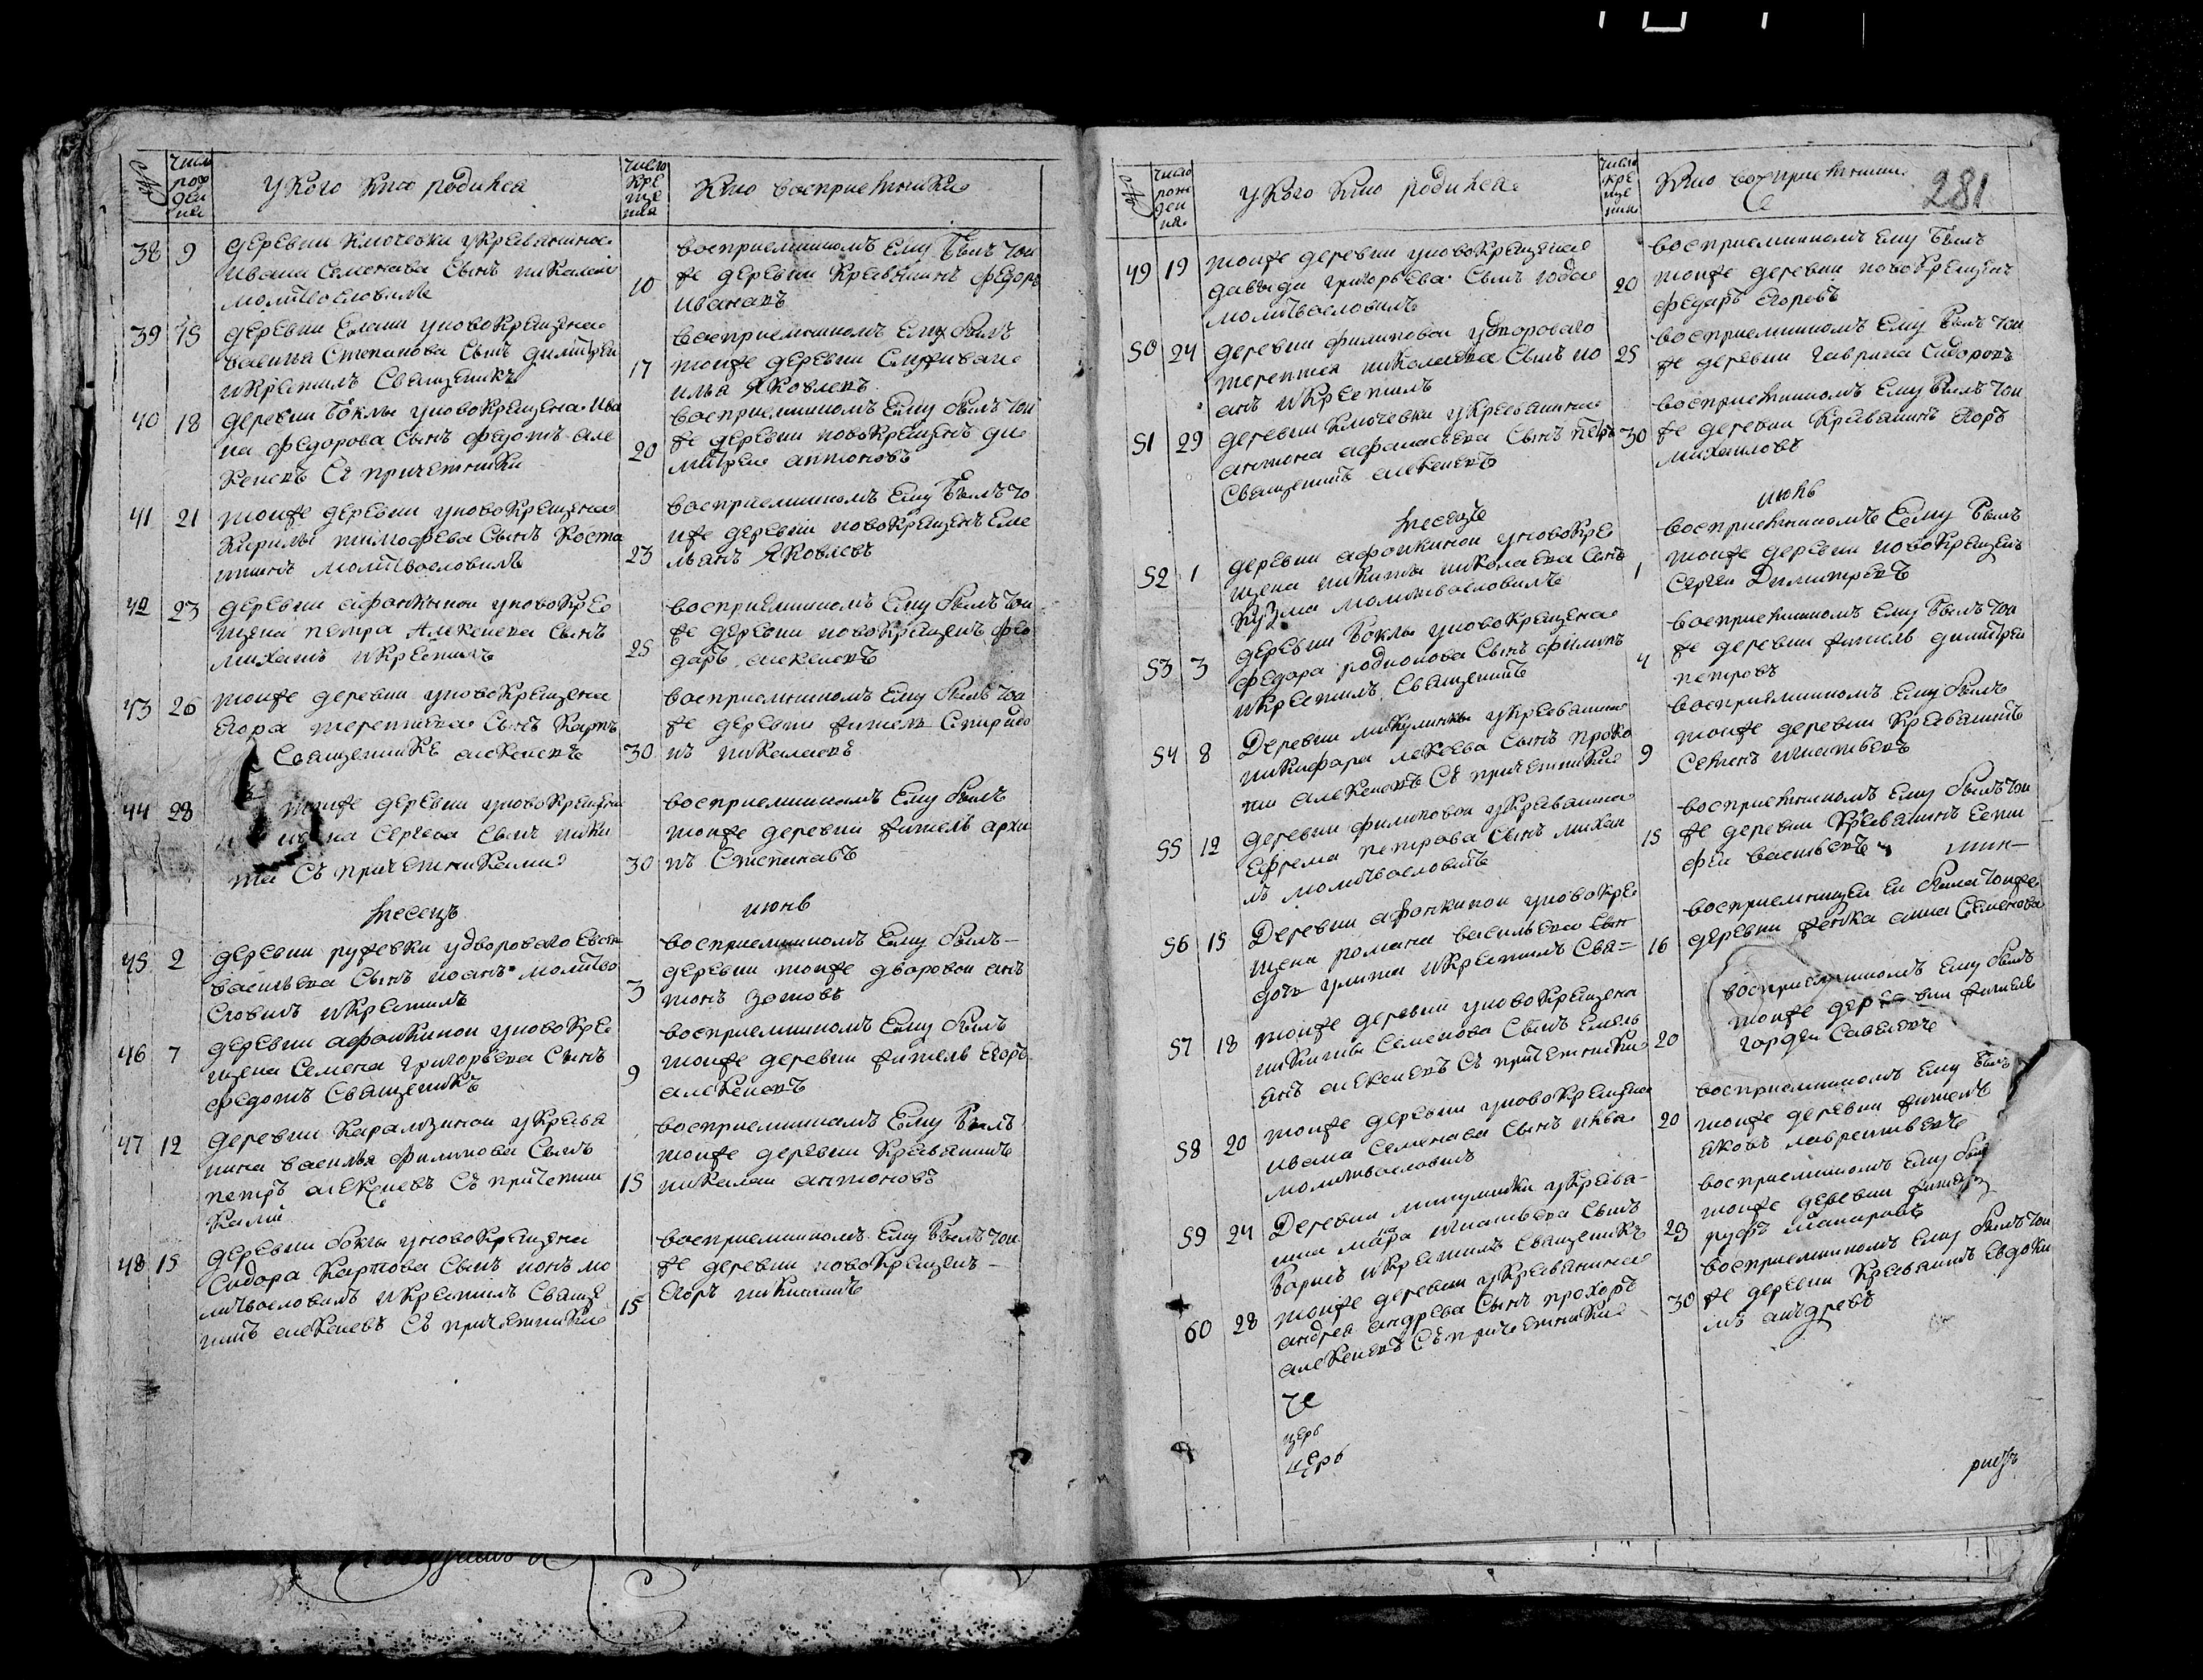 №
число рождения
у кого кто родился
число крещения
кто восприемники
38 9 деревни ключевки у кревянина
ивана семенова сынъ николай
молитвословилъ
10
восприемникомъ ему былъ той
же деревни кревянинъ федоръ
ивановъ
39 15 деревни елани у новокрещена
василиа степанова сынъ димитрей
и крестилъ священникъ
17
восприемникомъ ему былъ
тоиже деревни
илья яковлевъ
40 18 деревни боклы у новокрещена ива
на федорова сынъ федотъ але
ксеевъ съ причетники
20
восприемникомъ ему былъ той
же деревни новокрещенъ ди
митреи антоновъ
41 21 тоиже деревни у новокрещена
кирилы тимофеева сынъ коста
нтинъ молитвословилъ
23
восприемникомъ ему былъ то
иже деревни новокрещенъ еме
льянъ яковлевъ
42 23 деревни афонкинои у новокре
щена петра алексеева сынъ
михаилъ и крестилъ
25
восприемникомъ ему былъ той
же деревни новокрещенъ фео
даръ алексеевъ
43 26 тоиже деревни у новокрещена
егора терентиева сынъ карпъ
священникъ алексеевъ
30
восприемникомъ ему былъ той
же деревни житель спиридо
нъ николаевъ
44 28 тоиже деревни у новокрещена
сергеева сынъ ники
та съ причетниками
30
восприемникомъ ему былъ
тоиже деревни житель архи
пъ степановъ
месецъ июнь
45 2 деревни ружевки у двороваго
васильева сынъ иоанъ молитво
словилъ и крестилъ
3
восприемникомъ ему былъ
деревни тоиже дворовои ан
тонъ зотовъ
46 7 деревни афонкинои у новокре
щена семена григорьева сынъ
федотъ священникъ
9
восприемникомъ ему былъ
тоиже деревни житель егоръ
алексеевъ
47 12 деревни карамзинои у кревя
нина василья филипова сынъ
петръ алексеевъ съ причетни
ками
15
восприемникомъ ему былъ
тоиже деревни кревянинъ
николаи антоновъ
48 15 деревни боклы у новокрещена
сидора карпова сынъ ионъ мо
литвословилъ и крестилъ свяще
никъ алексеевъ съ причетники
15
восприемникомъ ему былъ той
же деревни новокрещенъ
егоръ никитинъ
№
число рождения
у кого кто родился
число крещения
кто восприемники
281
49 19 тоиже деревни у новокрещена
давыда григорьева сынъ
молитвословилъ
20
восприемникомъ ему былъ
тоиже деревни новокрещенъ
федаръ егоровъ
50 24 деревни филиповои у двороваго
терентия николаева сынъ ио
анъ и крестилъ
25
восприемникомъ ему былъ той
же деревни гаврила сидоровъ
51 29 деревни ключевки у кревянина
антона афанасьева сынъ петръ
священникъ алексеевъ
30
восприемникомъ ему былъ той
же деревни кревянинъ егоръ
михаиловъ
месецъ июль
52 1 деревни афонкинои у новокре
щена никиты николаева сынъ
кузма молитвословилъ
1
восприемникомъ ему былъ
тоиже деревни новокрещенъ
сергеи димитревъ
53 3 деревни боклы у новокрещена
федора родионова сынъ филипъ
и крестилъ священникъ
4
восприемникомъ ему былъ той
же деревни житель димитреи
петровъ
54 8 деревни микулинки у кревянина
никифара сынъ проко
пии алексеевъ съ причетники
9
восприемникомъ ему былъ
тоиже деревни кревянинъ
семенъ игнатьевъ
55 12 деревни филиповои у кревянина
ефрема петрова сынъ михаи
лъ молитвословилъ
15
восприемникомъ ему былъ той
же деревни кревянинъ епи
фанъ васильевъ
56 15 деревни афонкинои у новокре
щена романа васильева
дочь улита и крестилъ свя=
16
восприемницеи еи была тоиже
деревни женка анна семенова
57 18 тоиже деревни у новокрещена
никиты семенова сынъ емель
янъ алексеевъ съ причетники
20
восприемникомъ ему былъ
тоиже деревни житель
гордеи савельевъ
58 20 тоиже деревни у новокрещена
ивана семенова сынъ
молитвословилъ
20
восприемникомъ ему былъ
тоиже деревни житель
яковъ лаврентьевъ
59 24 деревни микулинки у кревя-
нина игнатьева сынъ
борисъ и крестилъ священникъ
29
восприемникомъ ему
тоиже деревни
60 28 тоиже деревни у кревянина
андрея андреева сынъ прохоръ
алексеевъ съ причетники
30
восприемникомъ ему былъ той
же деревни кревянинъ евдоки
мъ андреевъ
че
церь
церь